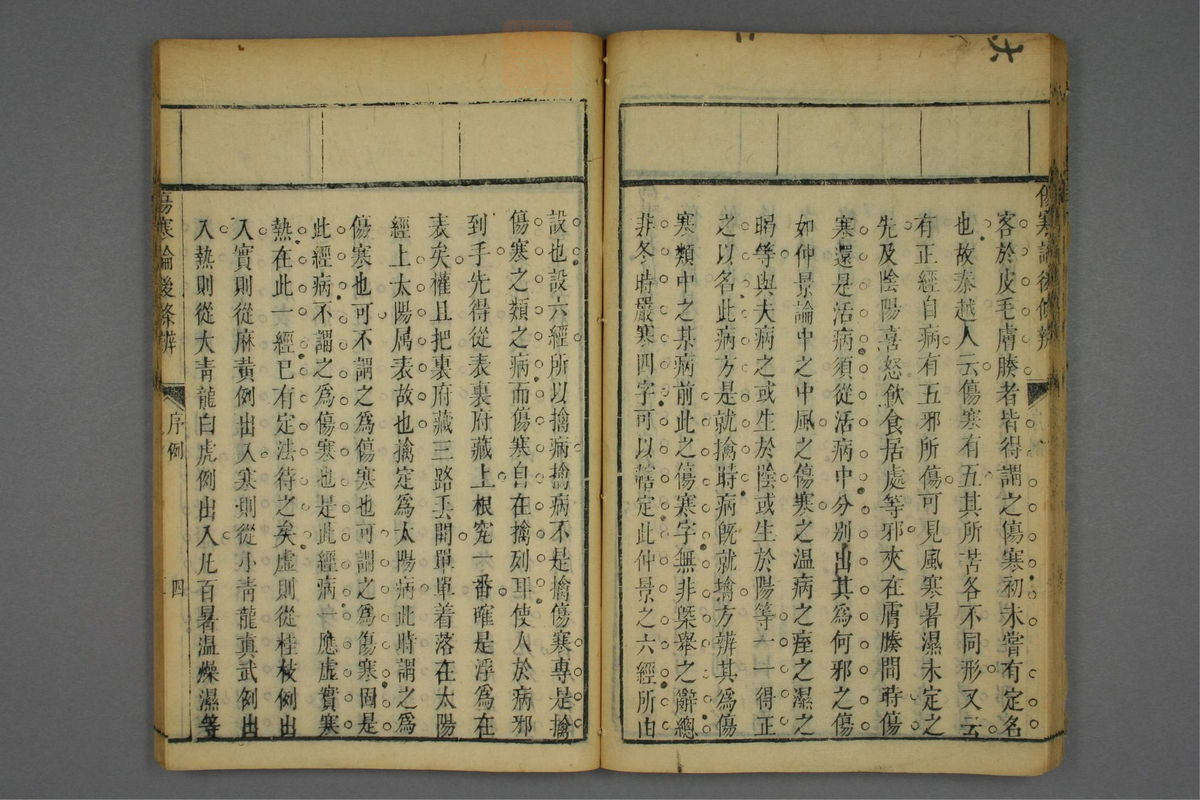 傷寒論後條辨
客於皮毛膚腠者皆得謂之傷寒初未嘗有定名
也故秦越人云傷寒有五其所苦各不同形又云
有正經自病有五邪所傷可見風寒暑濕未定之
先及陰陽喜怒飲食居處等邪夾在膚腠間時傷
寒還是活病須從活病中分別出其為何邪之傷
如仲景論中之中風之傷寒之溫病之痙之濕之
暍等與夫病之或生於陰或生於陽等一一得正
之以名此病方是就擒時病旣就擒方辨其為傷
寒類中之某病前此之傷寒字無非槩舉之辭總
非冬時嚴寒四字可以轄定此仲景之六經所由
設也設六經所以擒病擒病不是擒傷寒專是擒
傷寒之類之病而傷寒自在擒列耳使人於病邪
到手先得從表裏府藏上根究一番確是浮為在
表矣權且把裏府藏三路丟開單單着落在太陽
經上太陽属表故也擒定為太陽病此時謂之為
傷寒也可不謂之為傷寒也可謂之為傷寒固是
此經病不謂之為傷寒也是此經病一應虛實寒
熱在此一經已有定法待之矣虛則從桂枝例出
入實則從麻黃例出入寒則從小青龍眞武例出
入熱則從大青龍白虎例出入凡百暑溫燥濕等
傷寒論後條辨
序例
四